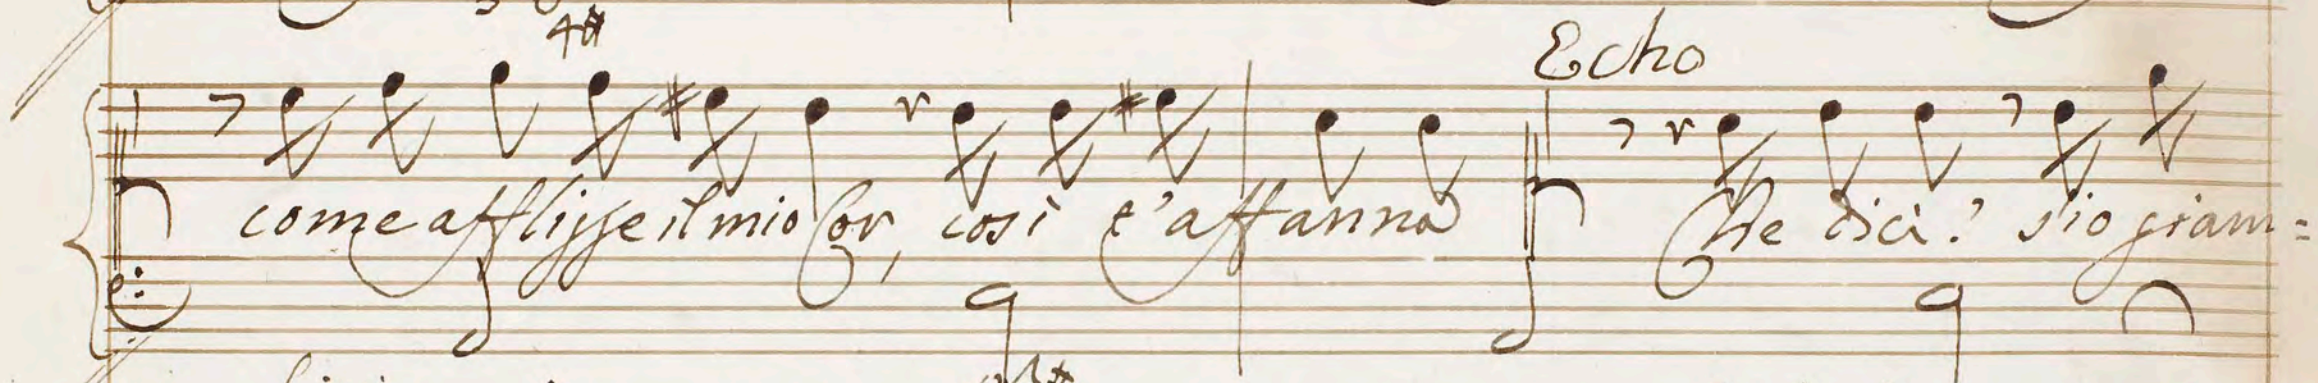 4#
Echo
come afflisse il mio Cor, così t'affanna Che dici? s'io giam=